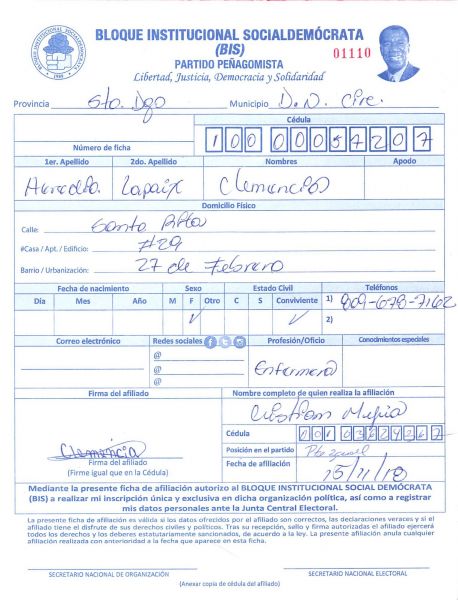 BLOQUE INSTITUCIONAL SOCIALDEMÓCRATA
(BIS)
01110
PARTIDO PEÑAGOMISTA
Libertad, Justicia, Democracia y Solidaridad
Provincia Sto. Dgo Municipio D.N. Circ.
Cédula
Número de ficha 100 0005720 7
1er. Apellido 2do. Apellido Nombres Apodo
Heredia Lapaix Clemencia
Domicilio Físico
Calle: Santa Rita
#Casa / Apt. / Edificio: #29
Barrio / Urbanización: 27 de Febrero
Fecha de nacimiento Sexo Estado Civil Teléfonos
Día Mes Año M F Otro C S Conviviente 1) 809-678-7162
2)
Correo electrónico Redes sociales Profesión/Oficio Conocimientos especiales
@
@ Enfermera
@
Firma del afiliado Nombre completo de quien realiza la afiliación
Cristian Mejia
Cédula 001 0362436 7
Clemencia Posición en el partido
Firma del afiliado Fecha de afiliación 15/11/18
(Firme igual que en la Cédula)
Mediante la presente ficha de afiliación autorizo al BLOQUE INSTITUCIONAL SOCIAL DEMÓCRATA
(BIS) a realizar mi inscripción única y exclusiva en dicha organización política, así como a registrar
mis datos personales ante la Junta Central Electoral.
La presente ficha de afiliación es válida si los datos ofrecidos por el afiliado son correctos, las declaraciones veraces y si el
afiliado tiene el disfrute de sus derechos civiles y políticos. Tras su recepción, sello y firma autorizados el afiliado ejercerá
todos los derechos y los deberes estatutariamente sancionados, de acuerdo a la ley. La presente afiliación anula cualquier
afiliación realizada con anterioridad a la fecha que aparece en esta ficha.
SECRETARIO NACIONAL DE ORGANIZACIÓN SECRETARIO NACIONAL ELECTORAL
(Anexar copia de cédula del afiliado)